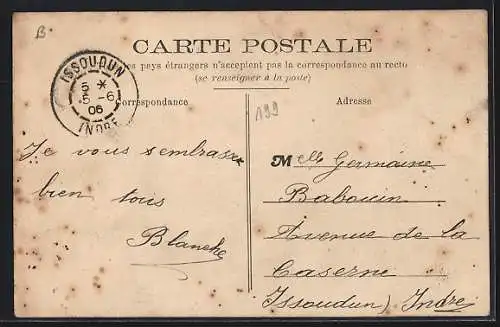 B
CARTE POSTALE
pays étrangers n'acceptent pas la correspondance au recto
(se renseigner à la poste)
ISSOUDUN
5 *
5 - 6
06
INDRE
Correspondance
Adresse
199
Je vous s'embrasse
bien tous
Blanche
Melle Germaine
Babouin
Avenue de la
Caserne
Issoudun) Indre